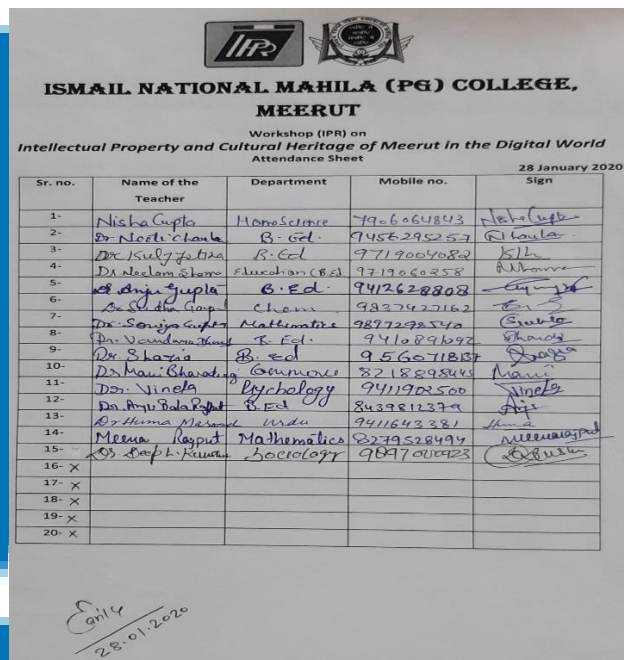 IPR
ISMAIL NATIONAL MAHILA (PG) COLLEGE,
MEERUT
Workshop (IPR) on
Intellectual Property and Cultural Heritage of Meerut in the Digital World
Attendance Sheet
28 January 2020
Sr. no. Name of the Teacher Department Mobile no. Sign
1- Nisha Gupta HomeScience 7906064843 Nisha Gupta
2- Dr Neeti Chawla B.Ed. 9456295257
3- B.Ed 9719004082
4- Dr Neelam Sharma Education (B.Ed) 9719060258
5- Dr Anju Gupta B.Ed. 9412628808
6- Dr Sudha Chem 9837427162
7- Dr. Gupta Mathematics 9897298540
8- Dr. Vandana B.Ed.
9- Dr. Shazia B.Ed
10- Dr Mani Commerce 8218898445 Mani
11- Dr. Vineta Psychology 9411902500 Vineta
12- Dr. Anju Bala Rajput B.Ed 8439812379 Anju
13- Dr Huma Masood Urdu 9411643381 Huma
14- Meena Rajput Mathematics 8279528494 Meenarajput
15- Dr. Sociology
16- x
17- x
18- x
19- x
20- x
28.01.2020